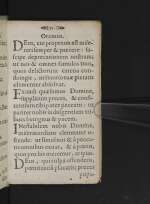 Oremus.
Deus, cui proprium est mise-
reri semper & parcere: su-
scipe deprecationem nostram;
ut nos & omnes famulos tuos,
quos delictorum catena con-
stringit, miseratio tuæ pietatis
clementer absolvat.
Exaudi quæsumus Domine,
supplicum preces, & confi-
tentium tibi parce peccatis: ut
pariter nobis indulgentiam tri-
buas benignus & pacem.
Ineffabilem nobis Domine,
misericordiam clementer o-
stende: ut simul nos & à pecca-
tis omnibus exuas, & à pœnis,
quas pro his meremur, eripias.
Deus, qui culpa offenderis,
pœnitentia placaris; preces